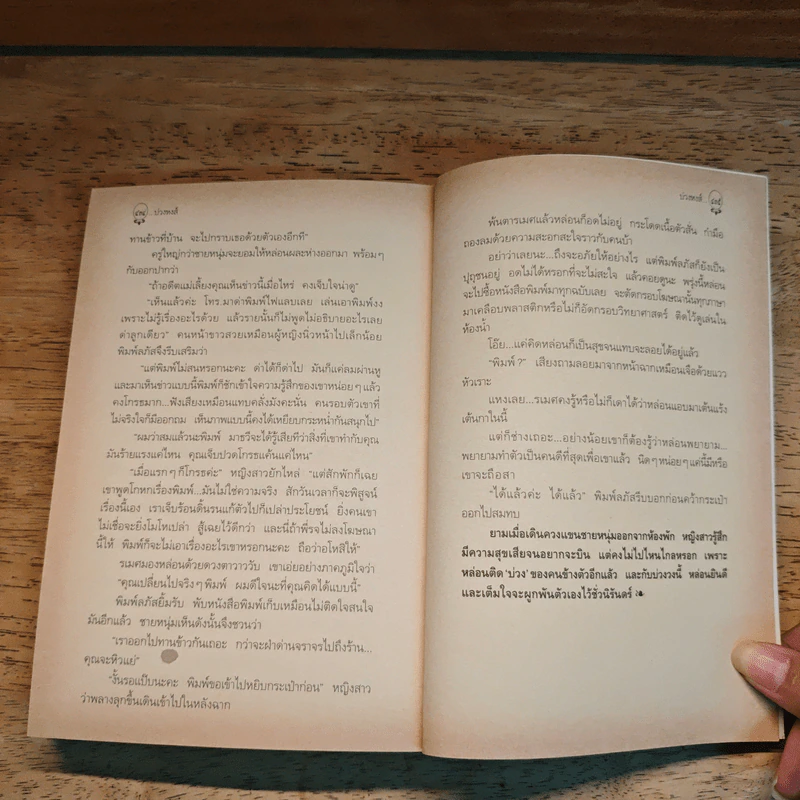 ๔๗๔ ...บ่วงหงส์
ทานข้าวที่บ้าน จะไปกราบเธอด้วยตัวเองอีกที"
ครูใหญ่กว่าชายหนุ่มจะยอมให้หล่อนผละห่างออกมา พร้อมๆ
กับออกปากว่า
"ถ้าอดีตแม่เลี้ยงคุณเห็นข่าวนี้เมื่อไหร่ คงเจ็บใจน่าดู"
"เห็นแล้วค่ะ โทร.มาด่าพิมพ์ไฟแลบเลย เล่นเอาพิมพ์งง
เพราะไม่รู้เรื่องอะไรด้วย แล้วรายนั้นก็ไม่พูดไม่อธิบายอะไรเลย
ด่าลูกเดียว" คนหน้าขาวสวยเหมือนผู้หญิงนิ่วหน้าไปเล็กน้อย
พิมพ์ลภัสจึงรีบเสริมว่า
"แต่พิมพ์ไม่สนหรอกนะคะ ด่าได้ก็ด่าไป มันก็แค่ลมผ่านหู
และมาเห็นข่าวแบบนี้พิมพ์ก็ชักเข้าใจความรู้สึกของเขาหน่อยๆ แล้ว
คงโกรธมาก...ฟังเสียงเหมือนแทบคลั่งมังคะนั่น คนรอบตัวเขาที่
ไม่จริงใจก็มีออกถม เห็นภาพแบบนี้คงได้เหยียบกระหน่ำกันสนุกไป"
"ผมว่าสมแล้วนะพิมพ์ มารวีจะได้รู้เสียทีว่าสิ่งที่เขาทำกับคุณ
มันร้ายแรงแค่ไหน คุณเจ็บปวดโกรธแค้นแค่ไหน"
"เมื่อแรกๆ ก็โกรธค่ะ" หญิงสาวยักไหล่ "แต่สักพักก็เฉย
เขาพูดโกหกเรื่องพิมพ์...มันไม่ใช่ความจริง สักวันเวลาก็จะพิสูจน์
เรื่องนี้เอง เราเจ็บร้อนดิ้นรนแก้ตัวไปก็เปล่าประโยชน์ ยิ่งคนเขา
ไม่เชื่อจะยิ่งโมโหเปล่า สู้เฉยไว้ดีกว่า และนี่ถ้าพี่รจไม่ลงโฆษณา
นี้ให้ พิมพ์ก็จะไม่เอาเรื่องอะไรเขาหรอกนะคะ ถือว่าอโหสิให้"
รเมศมองหล่อนด้วยดวงตาวาววับ เขาเอ่ยอย่างภาคภูมิใจว่า
"คุณเปลี่ยนไปจริงๆ พิมพ์ ผมดีใจนะที่คุณคิดได้แบบนี้"
พิมพ์ลภัสยิ้มรับ พับหนังสือพิมพ์เก็บเหมือนไม่ติดใจสนใจ
มันอีกแล้ว ชายหนุ่มเห็นดังนั้นจึงชวนว่า
"เราออกไปทานข้าวกันเถอะ กว่าจะฝ่าด่านจราจรไปถึงร้าน...
คุณจะหิวแย่"
"งั้นรอแป๊บนะคะ พิมพ์ขอเข้าไปหยิบกระเป๋าก่อน" หญิงสาว
ว่าพลางลุกขึ้นเดินเข้าไปในหลังฉาก
บ่วงหงส์... ๔๗๕
พ้นตารเมศแล้วหล่อนก็อดไม่อยู่ กระโดดเนื้อตัวสั่น กำมือ
ถองลมด้วยความสะอกสะใจราวกับคนบ้า
อย่าว่าเลยนะ...ถึงจะอภัยให้อย่างไร แต่พิมพ์ลภัสก็ยังเป็น
ปุถุชนอยู่ อดไม่ได้หรอกที่จะไม่สะใจ แล้วคอยดูนะ พรุ่งนี้หล่อน
จะไปซื้อหนังสือพิมพ์มาทุกฉบับเลย จะตัดกรอบโฆษณานั้นทุกภาษา
มาเคลือบพลาสติกหรือไม่ก็อัดกรอบวิทยาศาสตร์ ติดไว้ดูเล่นใน
ห้องน้ำ
โอ๊ย...แค่คิดหล่อนก็เป็นสุขจนแทบจะลอยได้อยู่แล้ว
"พิมพ์?" เสียงถามลอยมาจากหน้าฉากเหมือนเจือด้วยแวว
หัวเราะ
แหงเลย...รเมศคงรู้หรือไม่ก็เดาได้ว่าหล่อนแอบมาเต้นแร้ง
เต้นกาในนี้
แต่ก็ช่างเถอะ...อย่างน้อยเขาก็ต้องรู้ว่าหล่อนพยายาม...
พยายามทำตัวเป็นคนดีที่สุดเพื่อเขาแล้ว นิดๆ หน่อยๆ แค่นี้มีหรือ
เขาจะถือสา
"ได้แล้วค่ะ ได้แล้ว" พิมพ์ลภัสรีบบอกก่อนคว้ากระเป๋า
ออกไปสมทบ
ยามเมื่อเดินควงแขนชายหนุ่มออกจากห้องพัก หญิงสาวรู้สึก
มีความสุขเสียจนอยากจะบิน แต่คงไม่ไปไหนไกลหรอก เพราะ
หล่อนติด 'บ่วง' ของคนข้างตัวอีกแล้ว และกับบ่วงวงนี้ หล่อนยินดี
และเต็มใจจะผูกพันตัวเองไว้ชั่วนิรันดร์